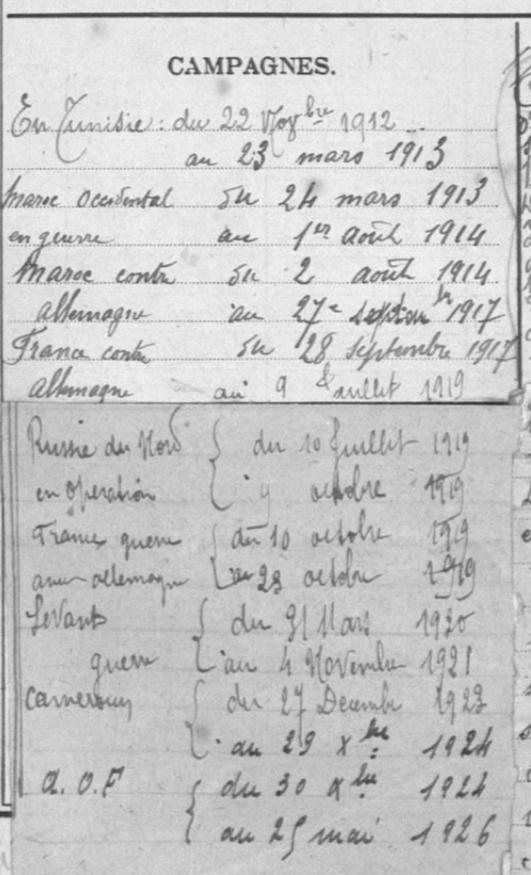 CAMPAGNES.
En Tunisie : du 22 Novbre 1912
au 23 mars 1913
Maroc Occidental du 24 mars 1913
en guerre au 1er août 1914
Maroc contre du 2 août 1914
allemagne au 27 septembre 1917
France contre du 28 Septembre 1917
allemagne au 9 Juillet 1919
Russie du Nord { du 10 Juillet 1919
en opération 9 octobre 1919
France guerre { du 10 octobre 1919
avec allemagne au 23 octobre 1919
Levant { du 31 Mars 1920
guerre au 4 Novembre 1921
Cameroun { du 27 Decembre 1923
au 29 Xbre 1924
A.O.F { du 30 Xbre 1924
au 25 mai 1926